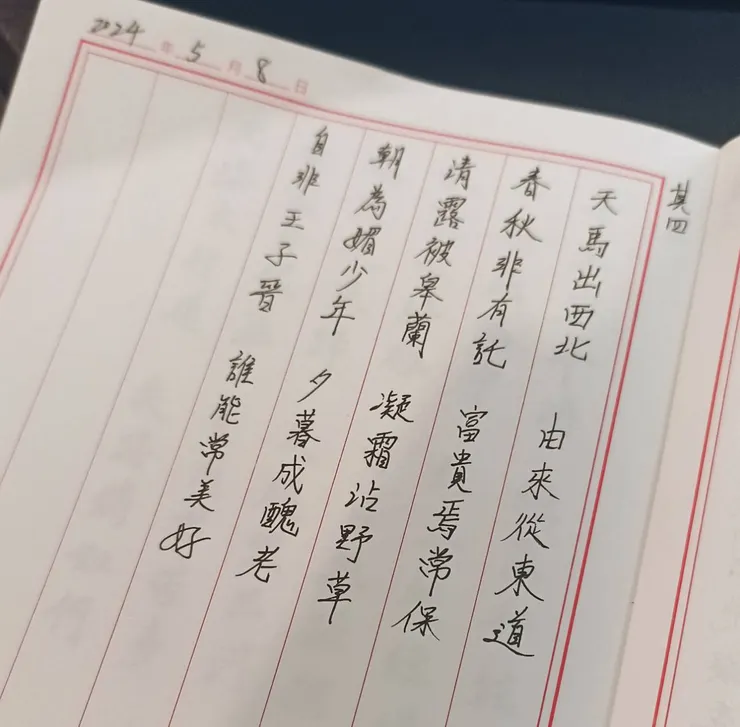 2024年5月8日
其四
天馬出西北 由來從東道
春秋非有託 富貴焉常保
清露被皋蘭 凝霜沾野草
朝為媚少年 夕暮成醜老
自非王子晉 誰能常美好